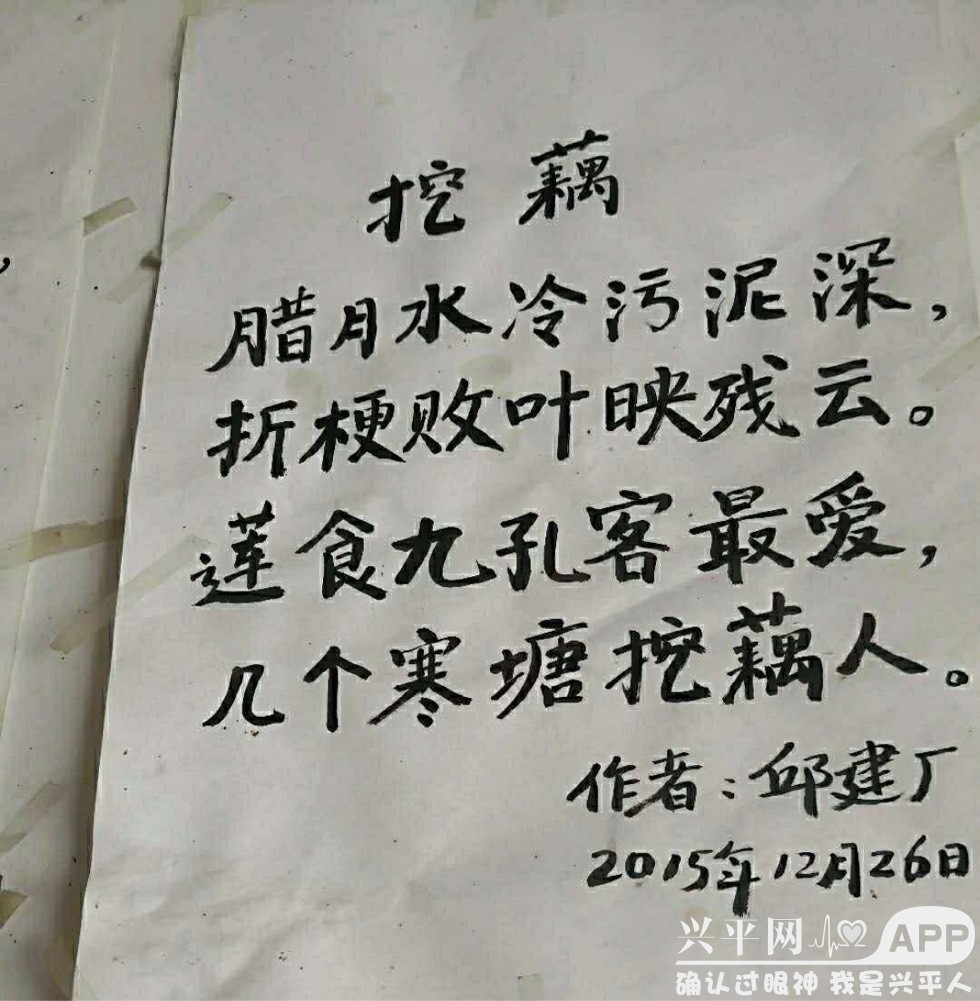 挖藕
腊月水冷污泥深，
折梗败叶映残云。
莲食九孔客最爱，
几个寒塘挖藕人。
作者：邱建厂
2015年12月26日
兴平网 APP
确认过眼神 我是兴平人